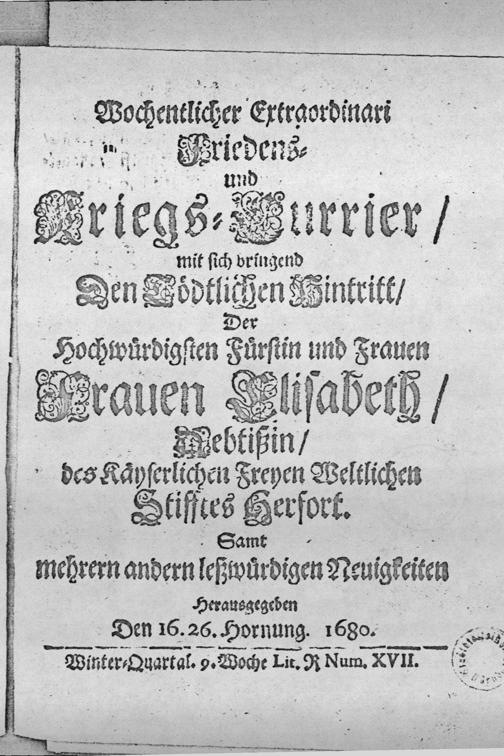 Wochentlicher Extraordinari
Friedens-
und
Kriegs-Currier /
mit sich bringend
Den Tödtlichen Hintritt /
Der
Hochwürdigsten Fürstin und Frauen
Frauen Elisabeth /
Aebtißin /
des Käyserlichen Freyen Weltlichen
Stifftes Herfort.
Samt
mehrern andern leßwürdigen Neuigkeiten
Herausgegeben
Den 16. 26. Hornung. 1680.
Winter-Quartal. 9. Woche Lit. R Num. XVII.